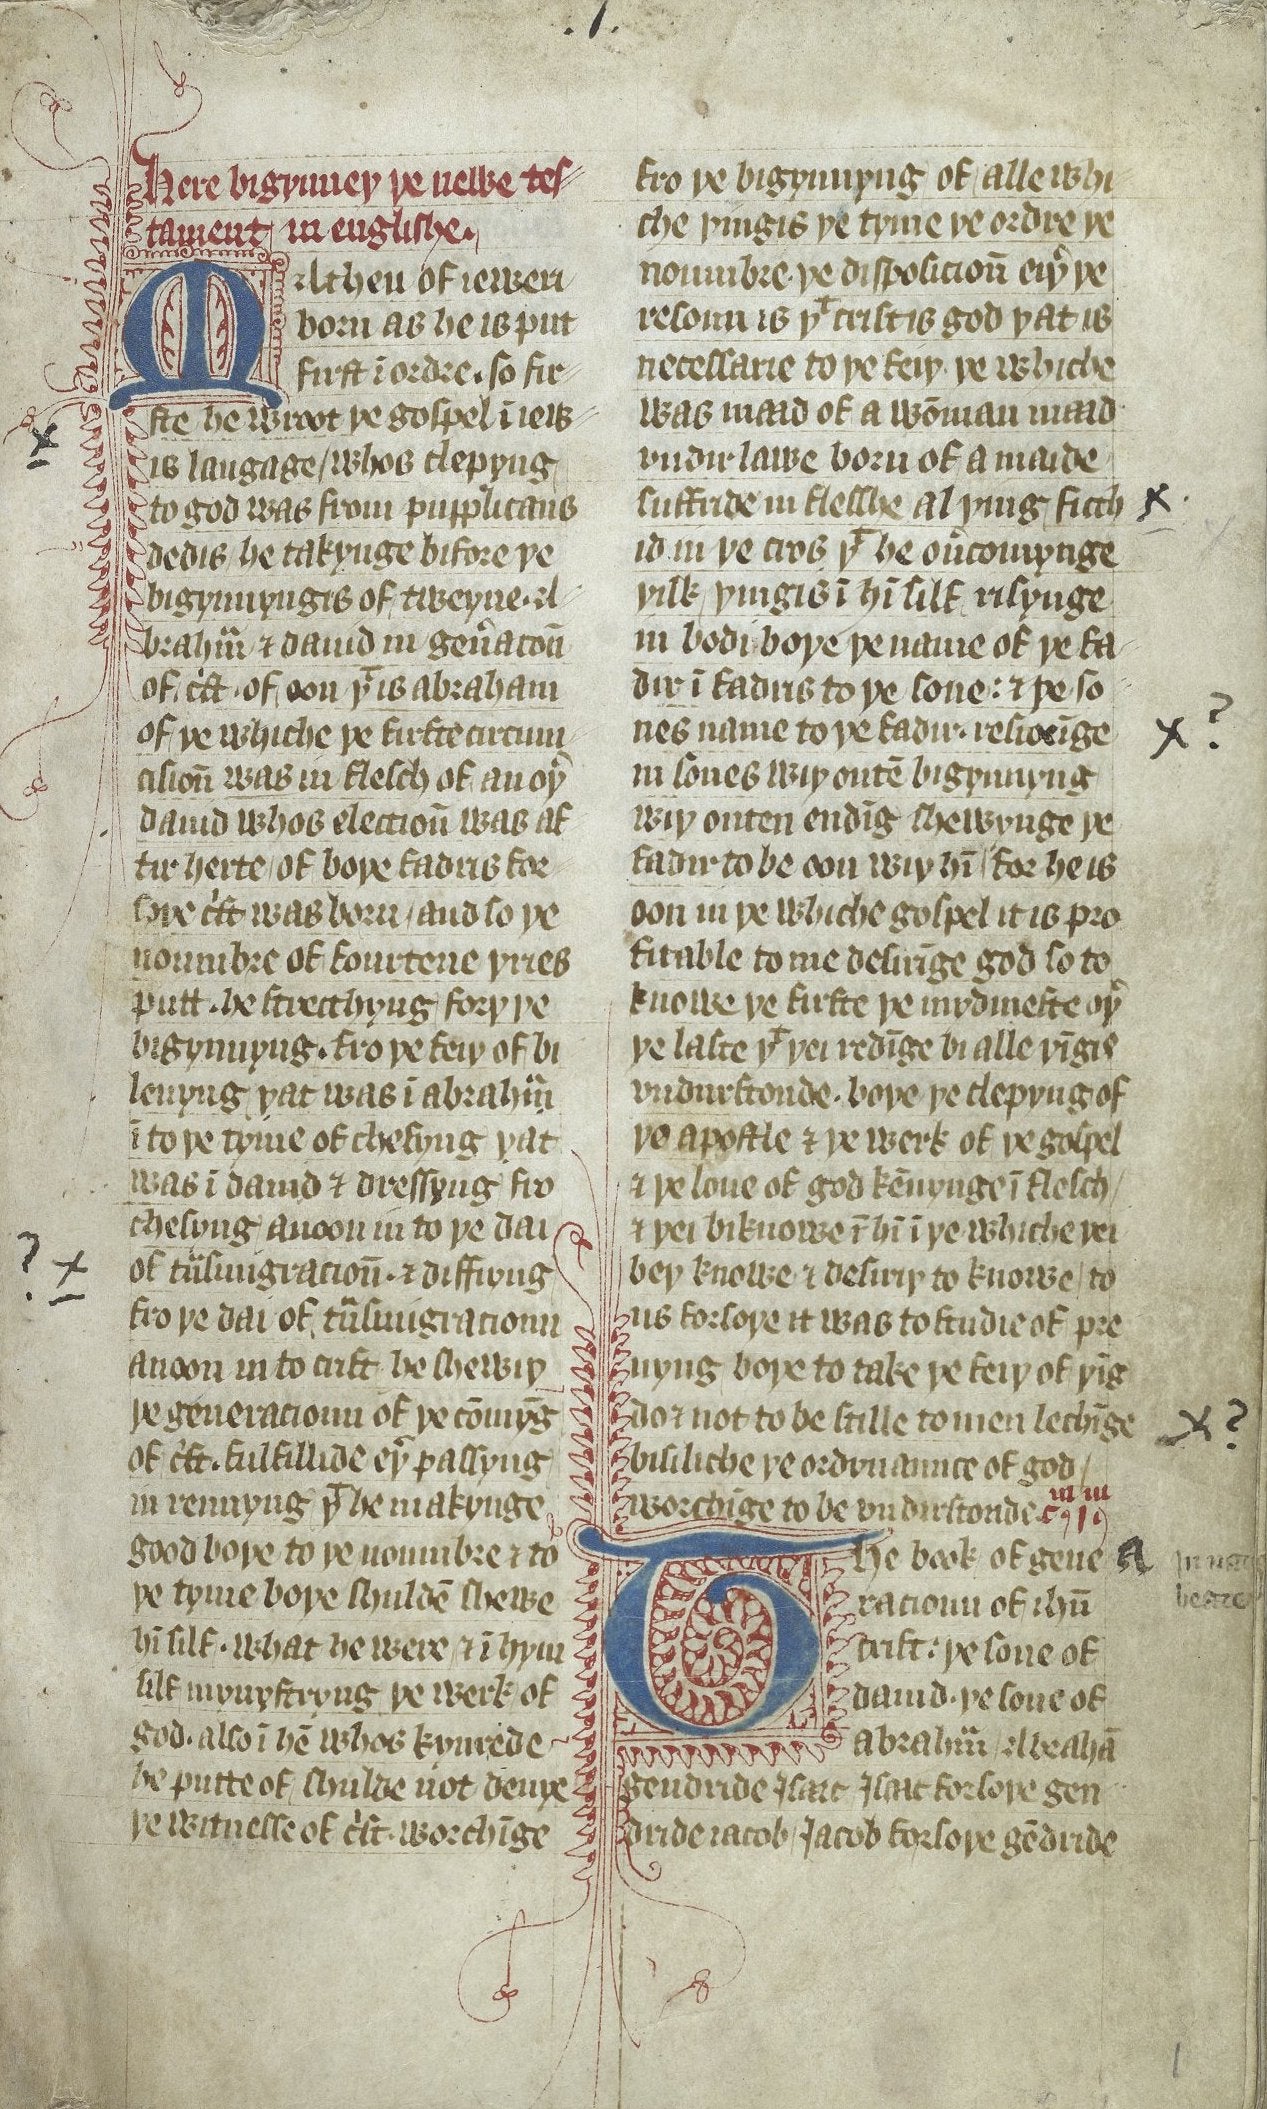 .1.
here bigynney ye newe tes
tament in englishe.
Matheu of ieweri
born as he is put
first ī ordre. so fir
ste he wroot ye gospel ī iew
is langage/whos clepyng
to god was from pupplicans
dedis/he takynge bifore ye
bigynnyngis of tweyne. a
brahm̄ ⁊ dauid in gen̄acoū
of. c̄st. of oon yͭ is abraham
of ye whiche ye firste circum
cisioū was in flesch of an oyͬ
dauid whos electioū was af
tir herte/of boye fadris for
soye c̄st was born/and so ye
noumbre of fourtene yries
putt. he strecchyng fory ye
bigynnyng. fro ye feiy of bi
leuyng yat was ī abrahm̄
ī to ye tyme of chesyng yat
was ī dauid ⁊ dressyng fro
chesyng anoon in to ye dai
of tͣnsmigracioū. ⁊ diffiyng
fro ye dai of tͣnsmigracioun
anoon in to crist he shewiy
ye generacioun of ye cōmyḡ
of c̄st. fulfillide eyͬ passyng
in rennyng yͭ he makynge
good boye to ye noumbre ⁊ to
ye tyme boye shuldē shewe
hī silf. what he were ⁊ ī hym
silf mynystryng ye werk of
god. also ī hē whos kynrede
he putte of/shulde not denye
ye witnesse of c̄st. worchīge
fro ye bigynnyng of/alle whi
che yingis ye tyme ye ordre ye
noumbre. ye disposicioū eiyͬ ye
resoun is yͭ crist is god yat is
necessarie to ye feiy. ye whiche
was maad of a wōman maad
vndir lawe born of a maide
suffride in flesshe al ying ficch
id in ye cros yͭ he ou̾comynge
yilk yingis ī hī silf risynge
in bodi boye ye name of ye fa
dir ī fadris to ye sone: ⁊ ye so
nes name to ye fadir. restorīge
in sones wiy outē bigynnyng
wiy outen endīg shewynge ye
fadir to be oon wiy hī/for he is
oon in ye whiche gospel it is pro
fitable to me desirīge god so to
knowe ye firste ye mydmeste oyͬ
ye laste yͭ yei redīge bi alle yīgis
vndurstonde. boye ye clepyng of
ye apostle ⁊ ye werk of ye gospel
⁊ ye loue of god kēnynge ī flesch/
⁊ yei biknowe hī ī ye whiche yei
bey knowe ⁊ desiriy to knowe/to
us forsoye it was to studie of pre
uyng boye to take ye feiy of yīg
do ⁊ not to be stille to men sechīge
bisiliche ye ordynaunce of god/
worchīge to be vndirstonde. cͫ 1ͫ
The book of gene
racioun of ihū
crist: ye sone of
dauid. ye sone of
abrahm̄/Abrahā
gendride Isaac Isaac forsoye gen
dride iacob/Jacob forsoye gēdride
x
? x
x
x ?
x ?
a
1